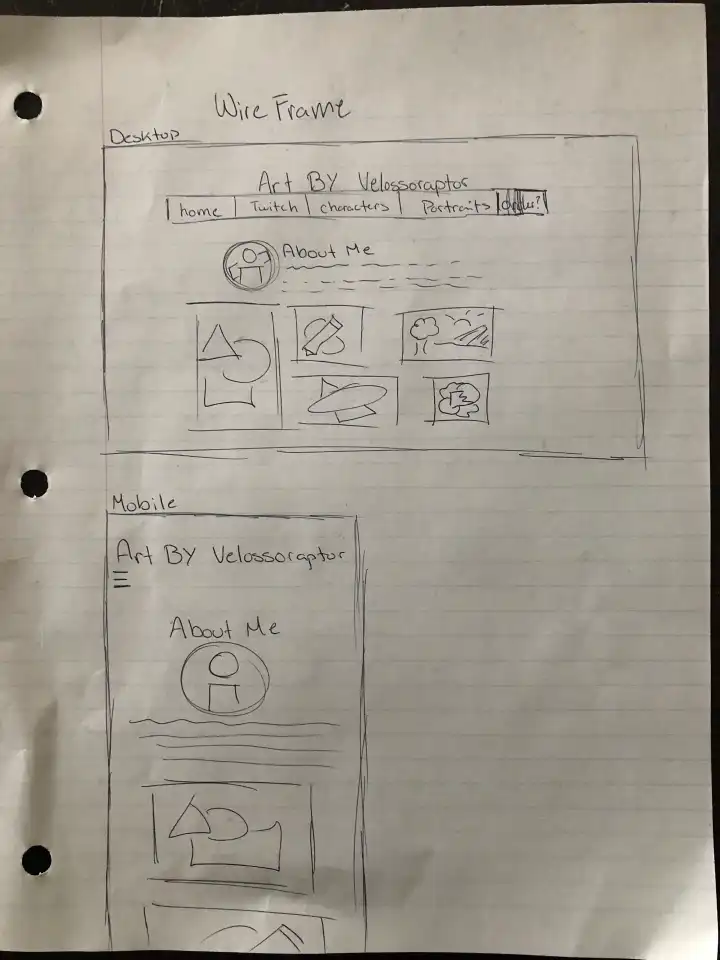 Wire Frame
Desktop
Art BY Velossoraptor
home Twitch characters Portraits
About Me
Mobile
Art BY Velossoraptor
About Me